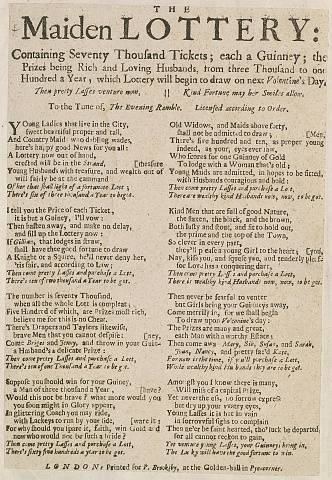 THE
Maiden LOTTERY:
Containing Seventy Thousand Tickets; each a Guinney; the
Prizes being Rich and Loving Husbands, from three Thousand to one
Hundred a Year, which Lottery will begin to draw on next Valentine's Day,
Then pretty Lasses venture now, || Kind Fortune may her Smiles allow.
To the Tune of, The Evening Ramble. Licensed according to Order.
Young Ladies that live in the City,
sweet beautiful proper and tall,
And Country Maids who dabling wades,
here's happy good News for you all:
A Lottery now out of hand,
erected will be in the Strand, [thesure
Young Husbands with treasure, and wealth out of
will fairly be at the command
Of her that shall light of a fortunate Lott;
There's six of three thousand a Year to be got.
I tell you the Price of each Ticket,
it is but a Guiney, I'll vow:
Then hasten away, and make no delay,
and fill up the Lottery now;
If Gillian, that lodges in straw,
shall have the good fortune to draw
A Knight or a Squire, he'll never deny her,
'tis fair, and according to Law;
Then come pretty Lasses and purchase a Lott,
There's ten of two thousand a Year to be got.
The number is seventy Thousand,
when all the whole Lott is compleat;
Five Hundred of which, are Prizes most rich,
believe me for this is no Cheat.
There's Drapers and Taylors likewise,
brave Men that you cannot despise: [ney,
Come Bridget and Jenny, and throw in your Gui-
a Husband's a delicate Prize:
Then come pretty Lasses and purchase a Lott,
There's ten of one Thousand a Year to be got.
Suppose you should win for your Guiney,
a Man of three thousand a Year, [have?
Would this not be brave? what more would you
you soon might in Glory appear,
In glittering Coach you may ride,
with Lackeys to run by your side, [ware it:
For why should you spare it, faith, win Gold and
now who would not be such a bride?
Then come pretty Lasses and purchase a Lott,
There's sixty five hundreds a year to be got.
Old Widows, and Maids above forty,
shall not be admitted to draw; [Men,
There's five hundred and ten, as proper young
indeed, as your eyes ever saw,
Who scorns for one Guiney of Gold
To lodge with a Woman that's old;
Young Maids are admitted, in hopes to be fitted,
with Husbands couragious and bold:
Then come pretty Lasses and purchase a Lott,
There are wealthy kind Husbands, now, now, to be got.
Kind Men that are full of good Nature,
the flaxen, the black, and the brown,
Both lusty and stout, and fit to hold out,
the prime and the top of the Town;
So clever in every part,
they'll please a young Girl to the heart; [you,
Nay, kiss you, and squeeze you, and tenderly please
for Love has a conquering dart;
Then come pretty Lasses and purchase a Lott,
There is wealthy kind Husbands now, now, to be got.
Then never be fearful to venter
but Girls bring your Guineys away,
Come merrily in, for we shall begin
To draw upon Valentine's day:
The Prizes are many and great,
each Man with a worthy Estate;
Then come away Mary, Sib, Susan, and Sarah,
Joan, Nancy, and pretty fac'd Kate,
For now is the time, if you'll purchase a Lott,
While wealthy kind Husbands they are to be got.
Amongst you I know there is many,
will miss of a capital Prize,
Yet never the less, no sorrow express
but dry up your watery eyes,
Young Lasses it is but in vain
in sorrowful sighs to complain
Then ne'er be faint hearted, tho' luck be departed,
for all cannot reckon to gain,
Yet venture young Lasses, your Guineys bring in,
The Lucky will have the good fortune to win.
LONDON: Printed for P. Brooksby, at the Golden-ball in Pye-corner.